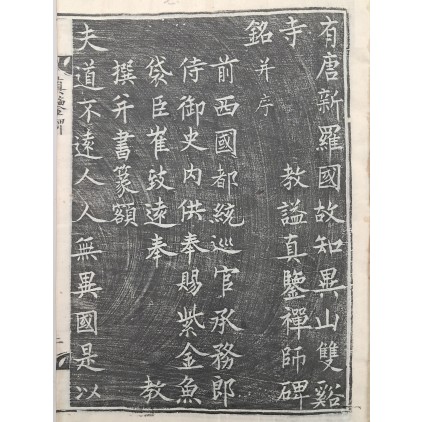 有唐新羅國故知異山雙谿
寺 教謚真鑒禪師碑
銘并序
前西國都統巡官承務郎
侍御史內供奉賜紫金魚
袋臣崔致遠奉 教
撰并書篆額
夫道不遠人人無異國是以
真鑒